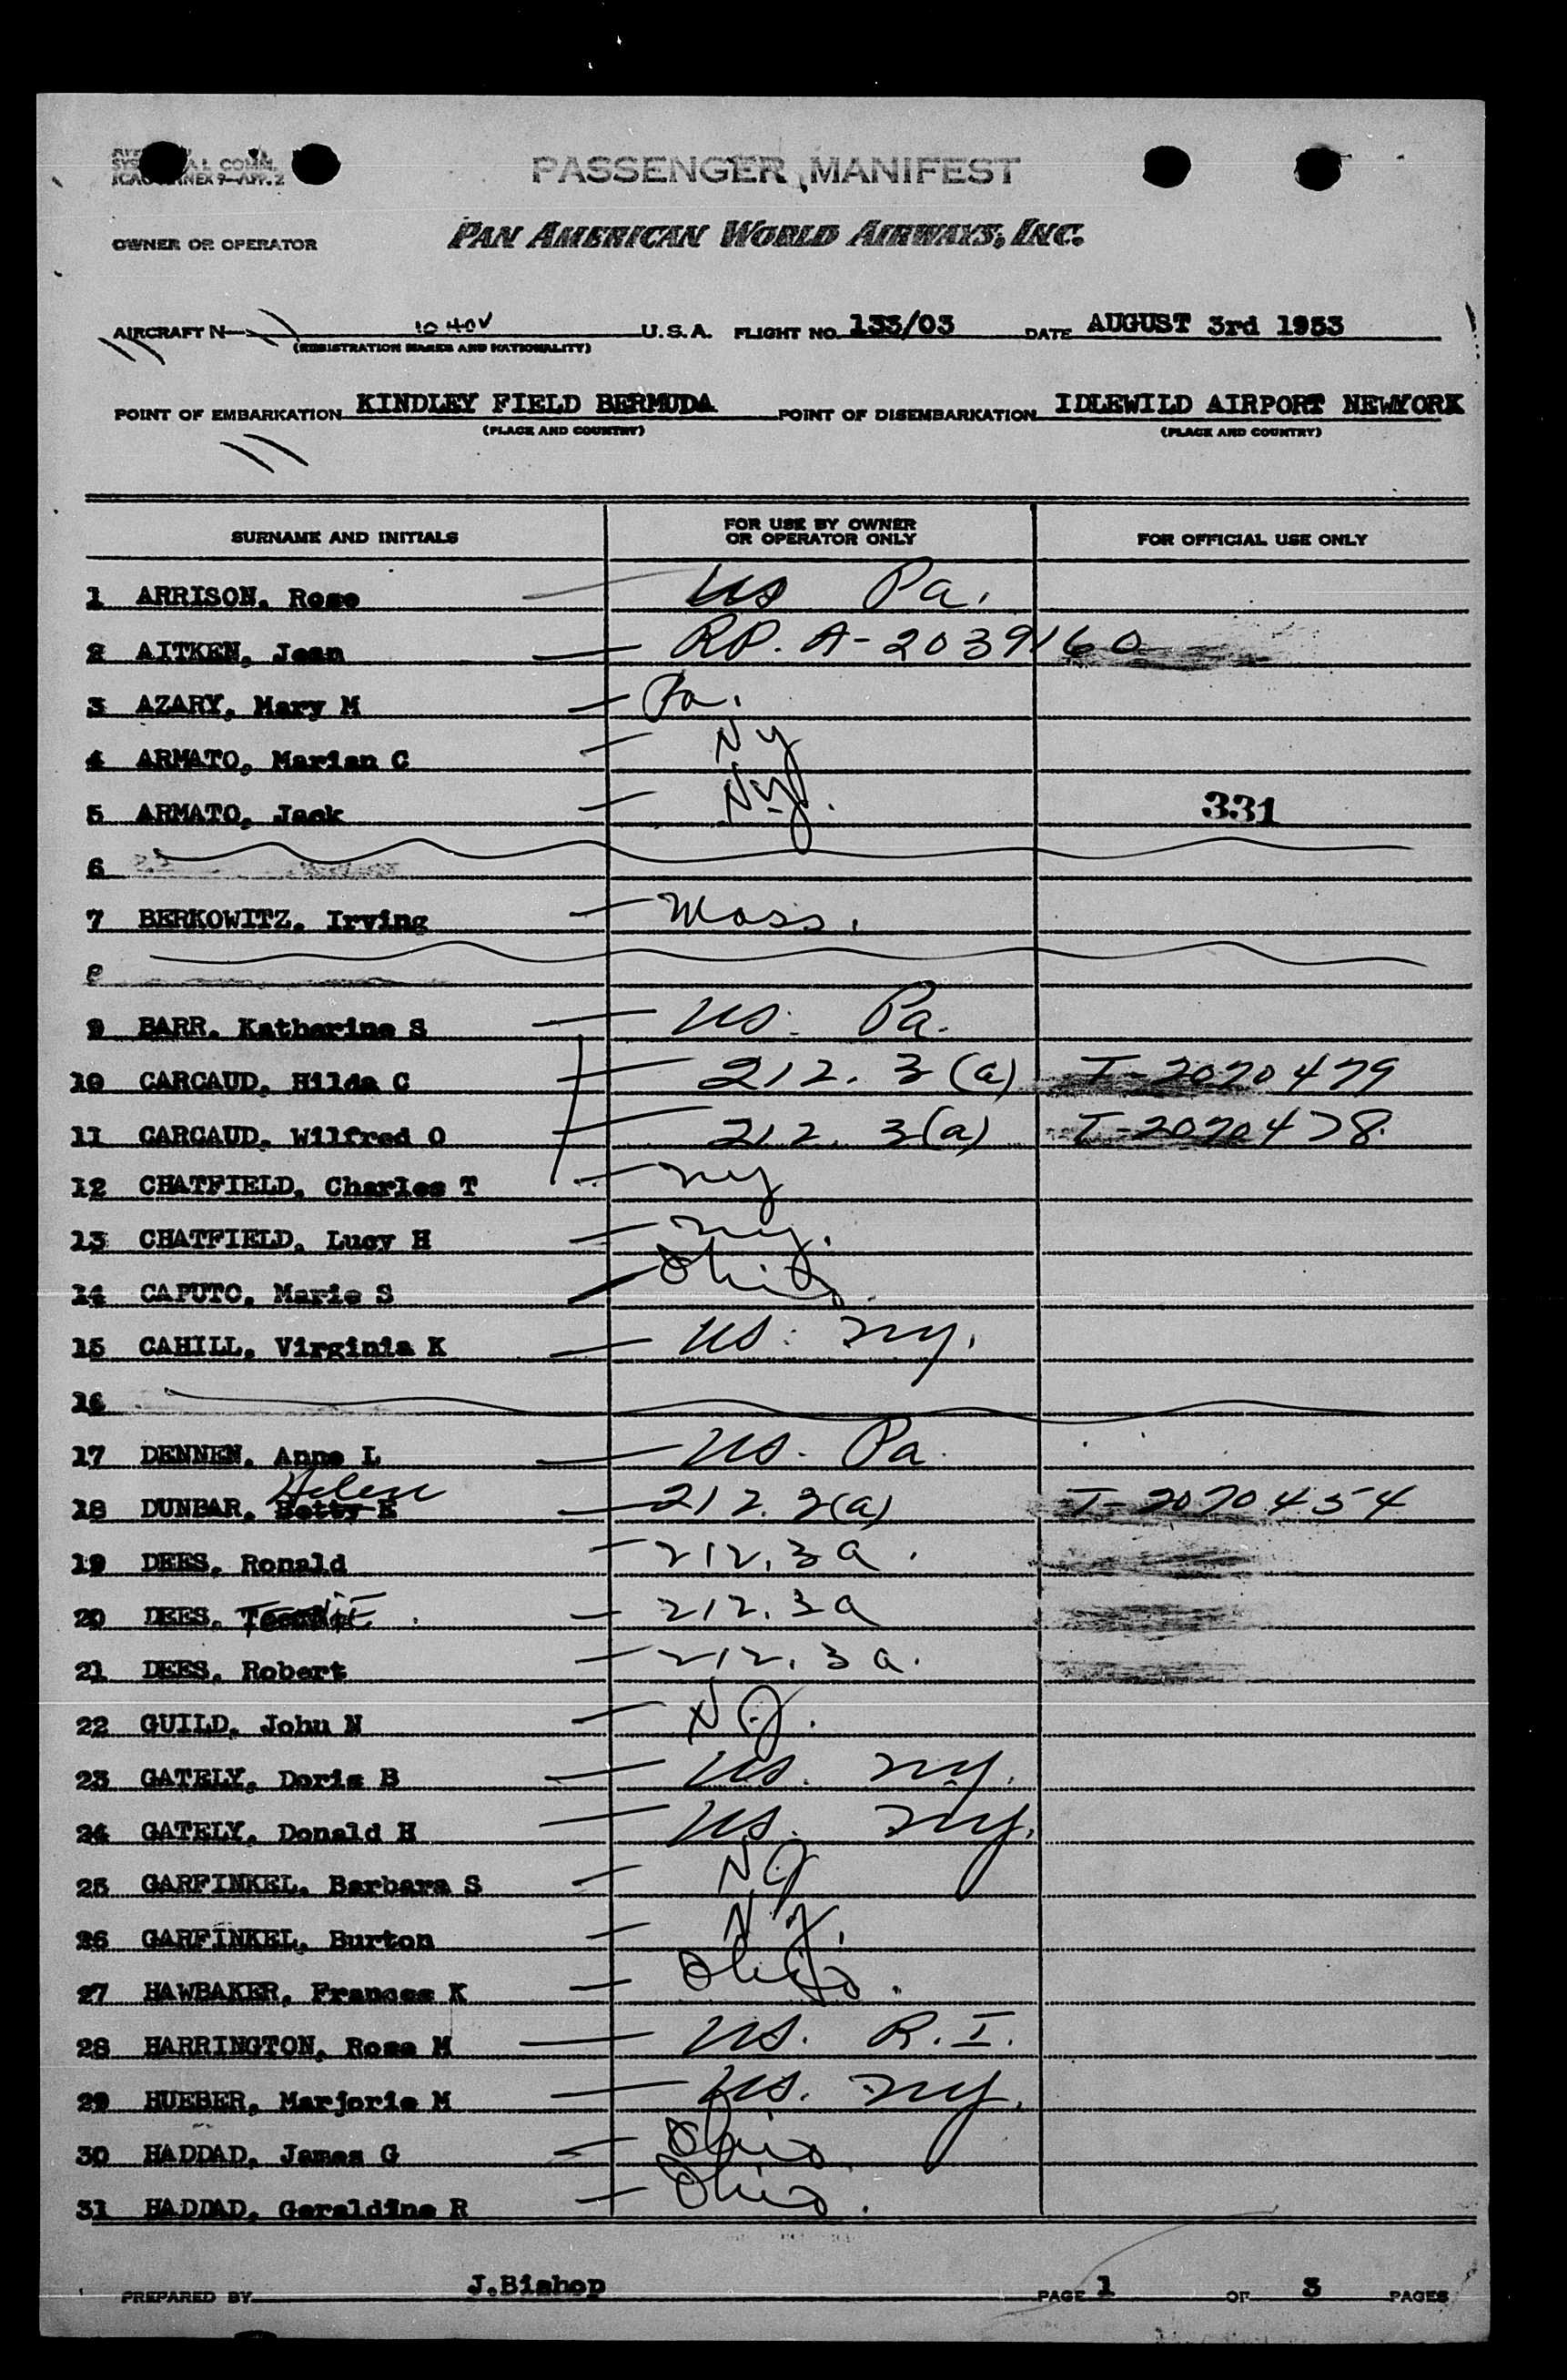 ICAO ANNEX 9-APP. 2
PASSENGER MANIFEST
OWNER OR OPERATOR PAN AMERICAN WORLD AIRWAYS, INC.
AIRCRAFT N 1040V U.S.A. FLIGHT NO. 133/03 DATE AUGUST 3rd 1953
(REGISTRATION MARKS AND NATIONALITY)
POINT OF EMBARKATION KINDLEY FIELD BERMUDA POINT OF DISEMBARKATION IDLEWILD AIRPORT NEWYORK
(PLACE AND COUNTRY) (PLACE AND COUNTRY)
SURNAME AND INITIALS FOR USE BY OWNER OR OPERATOR ONLY FOR OFFICIAL USE ONLY
1 ARRISON, Rose US Pa.
2 AITKEN, Jean RP. A-2039160
3 AZARY, Mary M Pa.
4 ARMATO, Marian C Ny
5 ARMATO, Jack Ny. 331
6
7 BERKOWITZ, Irving Mass.
8
9 BARR, Katherine S US. Pa.
10 CARCAUD, Hilda C 212.3(a) T-2020479
11 CARCAUD, Wilfred O 212.3(a) T-2020478.
12 CHATFIELD, Charles T ny
13 CHATFIELD, Lucy H ny.
14 CAPUTO, Marie S Ohio.
15 CAHILL, Virginia K US. ny.
16
17 DENNEN, Anne L US. Pa.
18 DUNBAR, Betty E Helen 212.3(a) T-2020454
19 DEES, Ronald 212.3a.
20 DEES, 212.3a
21 DEES, Robert 212.3a.
22 GUILD, John N NJ.
23 GATELY, Doris B US. ny.
24 GATELY, Donald H US. ny.
25 GARFINKEL, Barbara S NJ
26 GARFINKEL, Burton NJ.
27 HAWBAKER, Frances K Ohio.
28 HARRINGTON, Rose M US. R.I.
29 HUEBER, Marjorie M US. ny.
30 HADDAD, James G Ohio
31 HADDAD, Geraldine R Ohio.
PREPARED BY J.Bishop PAGE 1 OF 3 PAGES